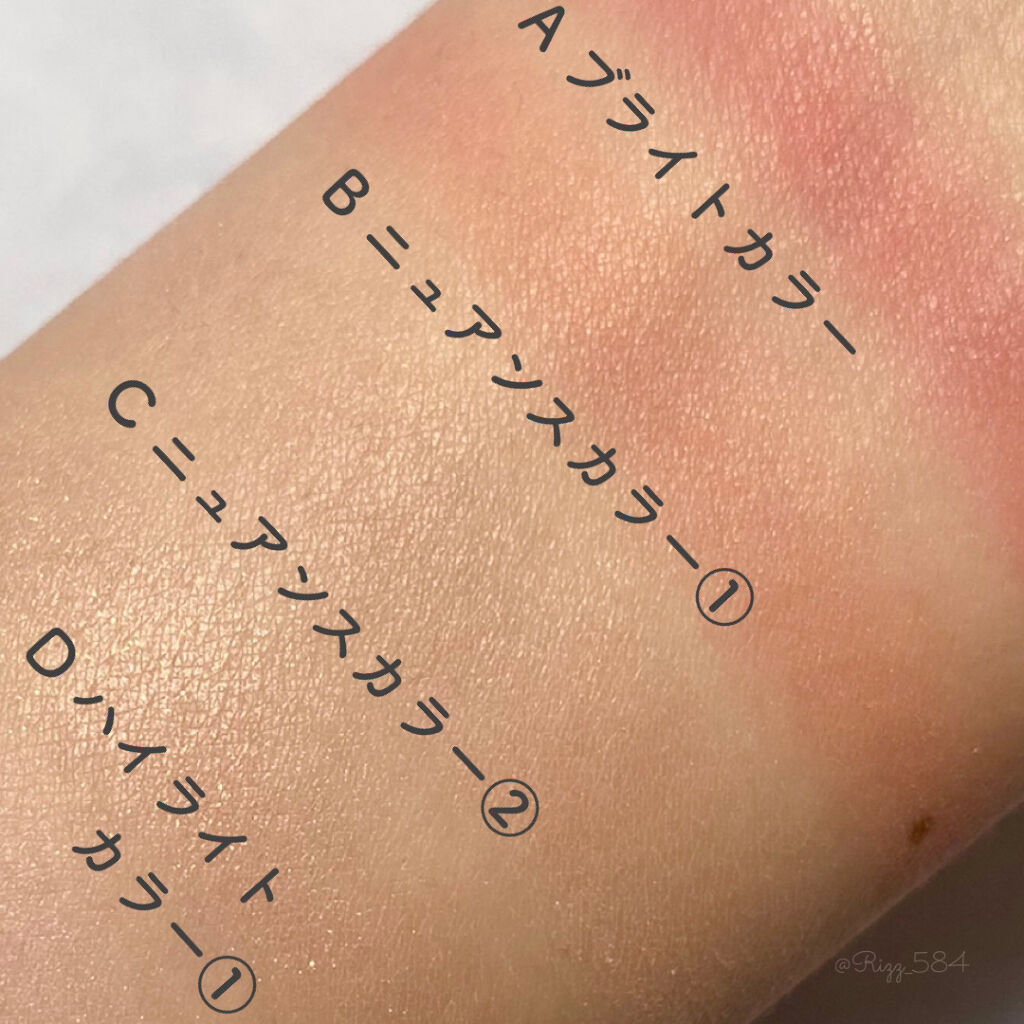 A ブライトカラー
B ニュアンスカラー①
C ニュアンスカラー②
D ハイライト
カラー①
@Rizz_584